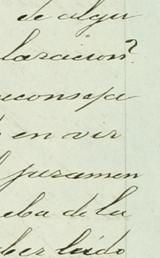 de algu
laracion?
aconseja
en ver
juramen
eba de la
ber leido